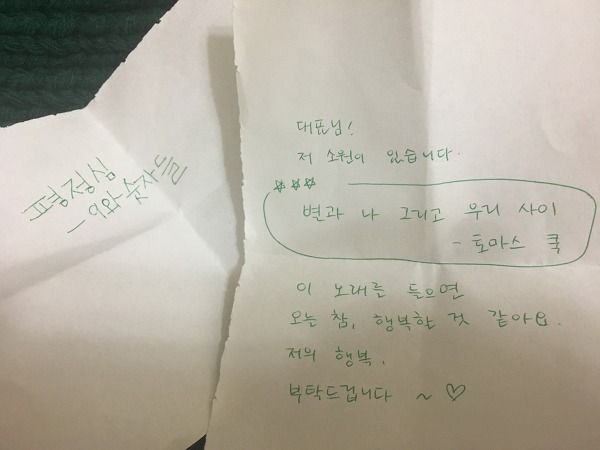 평정심
- 9와 숫자들
대표님!
저 소원이 있습니다.
☆☆☆
별과 나 그리고 우리 사이
- 토마스 쿡
이 노래를 들으면
오늘 참, 행복할 것 같아요.
저의 행복,
부탁드립니다 ~ ♡